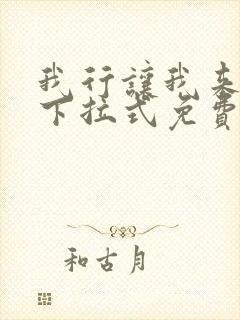 我行讓我来
下拉式免費
和古月